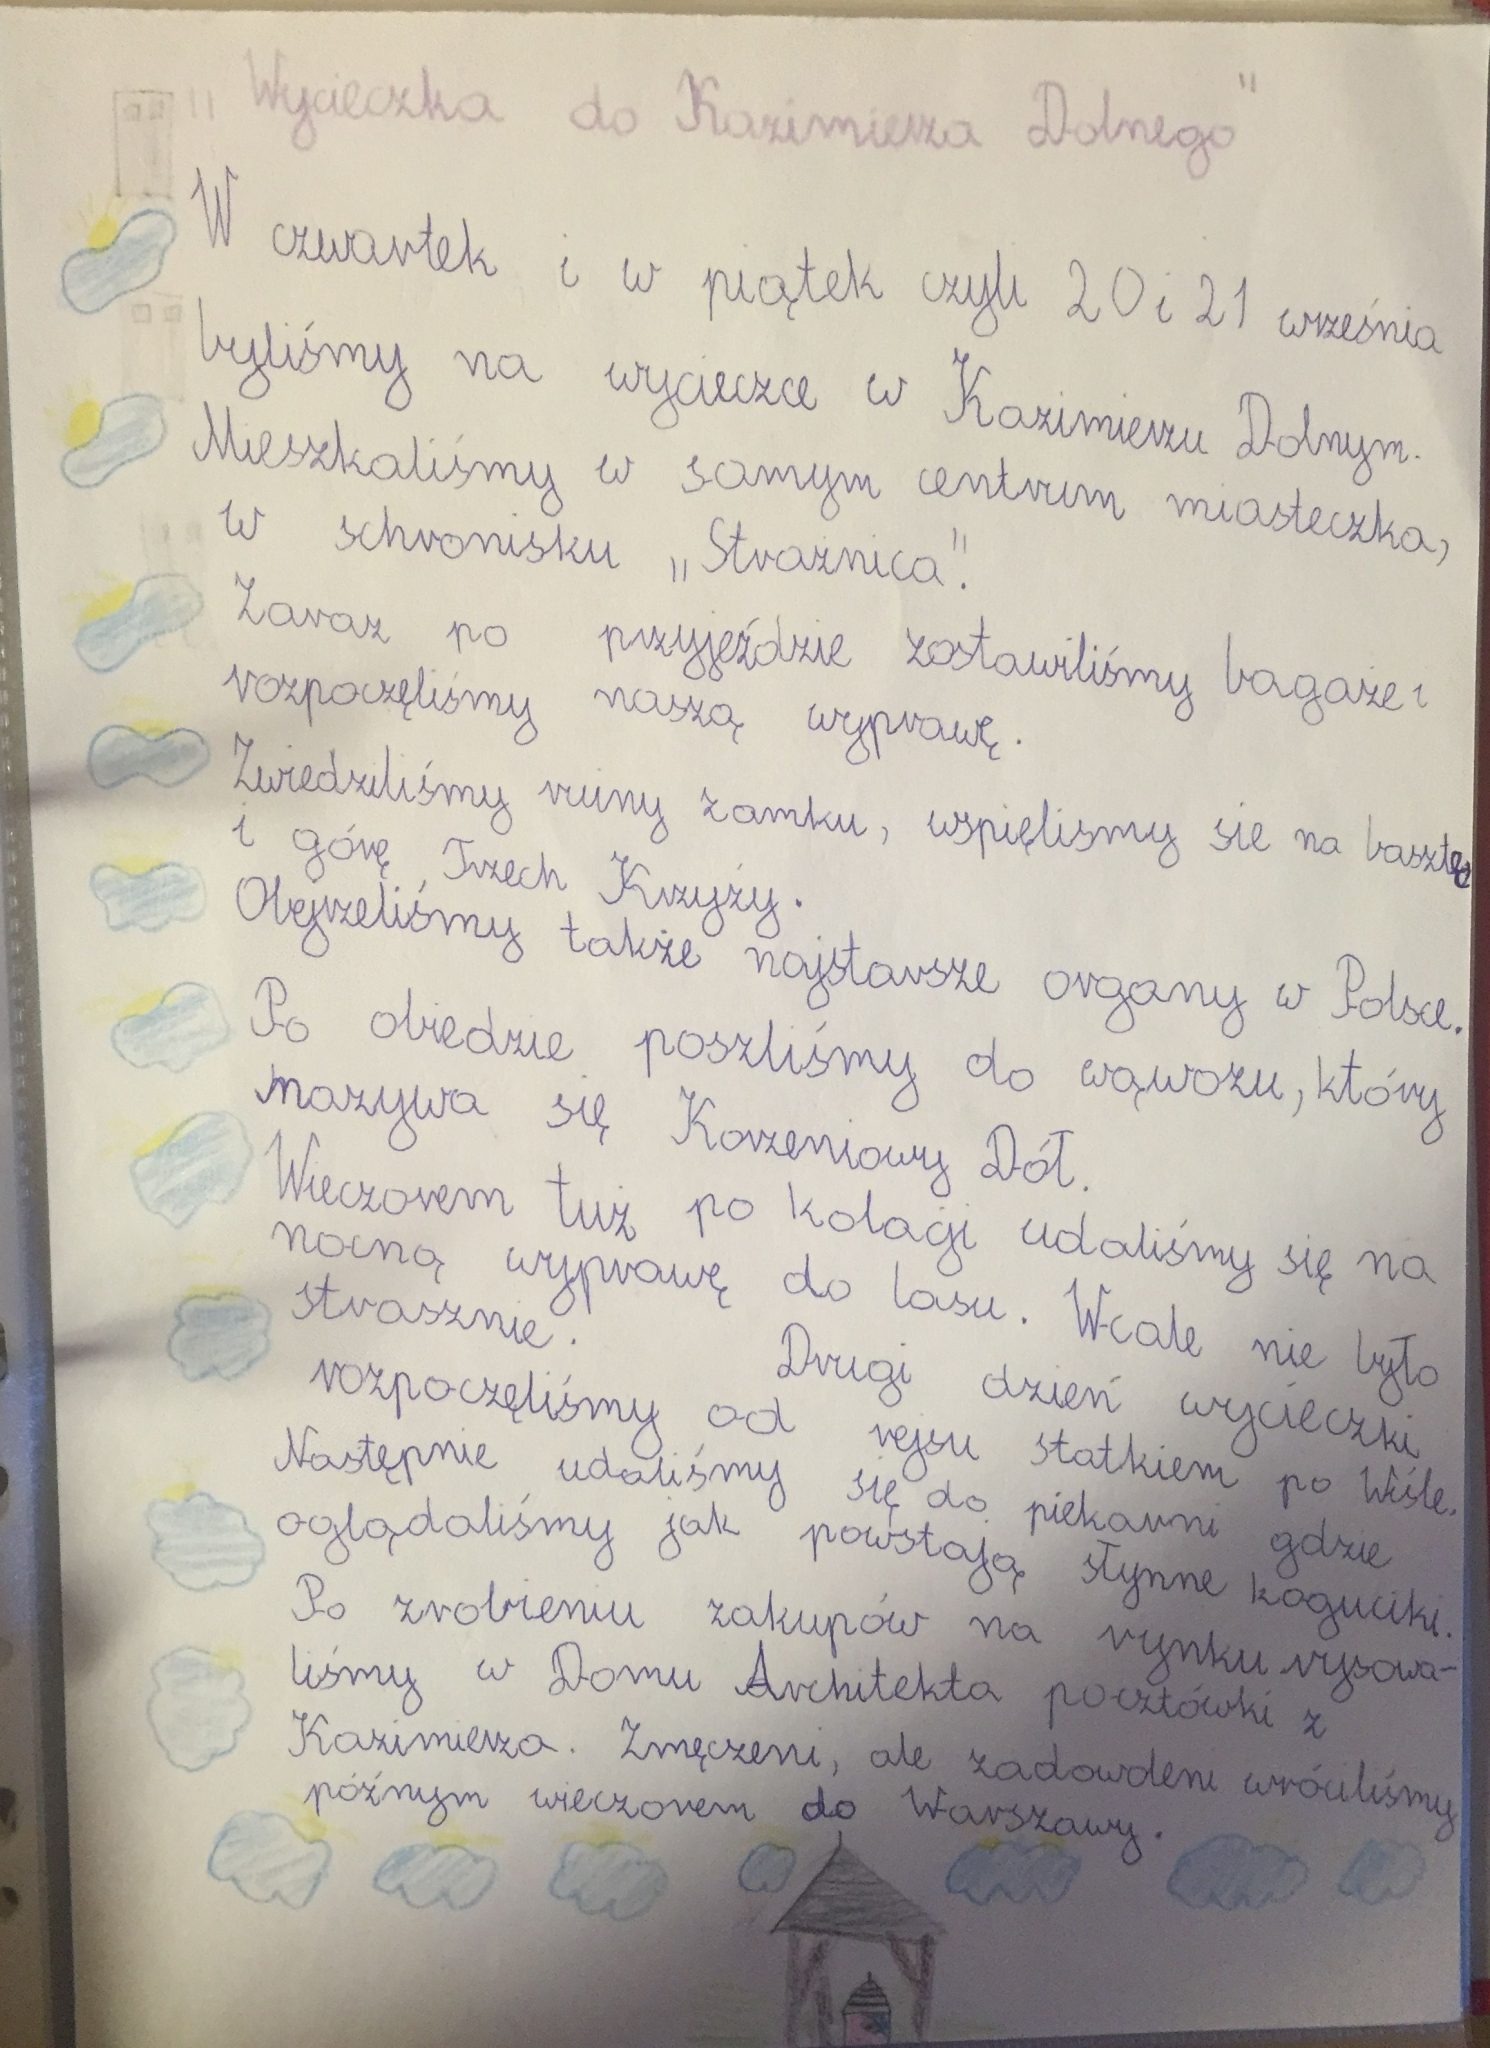 „Wycieczka do Kazimierza Dolnego"
W czwartek i w piątek czyli 20 i 21 września
byliśmy na wycieczce w Kazimierzu Dolnym.
Mieszkaliśmy w samym centrum miasteczka,
w schronisku „Strażnica".
Zaraz po przyjeździe zostawiliśmy bagaże i
rozpoczęliśmy naszą wyprawę.
Zwiedziliśmy ruiny zamku, wspięliśmy sie na basztę
i górę Trzech Krzyży.
Obejrzeliśmy także najstarsze organy w Polsce.
Po obiedzie poszliśmy do wąwozu, który
nazywa się Korzeniowy Dół.
Wieczorem tuż po kolacji udaliśmy się na
nocną wyprawę do lasu. Wcale nie było
strasznie. Drugi dzień wycieczki
rozpoczęliśmy od rejsu statkiem po Wiśle.
Następnie udaliśmy się do piekarni gdzie
oglądaliśmy jak powstają słynne koguciki.
Po zrobieniu zakupów na rynku rysowa-
liśmy w Domu Architekta pocztówki z
Kazimierza. Zmęczeni, ale zadowoleni wróciliśmy
późnym wieczorem do Warszawy.